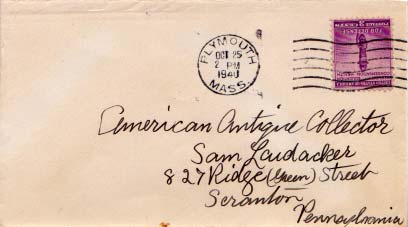 PLYMOUTH
OCT 25
2 PM
1940
MASS.
FOR DEFENSE
American Antique Collector
Sam Laidacker
827 Ridge (Green) Street
Scranton
Pennsylvania